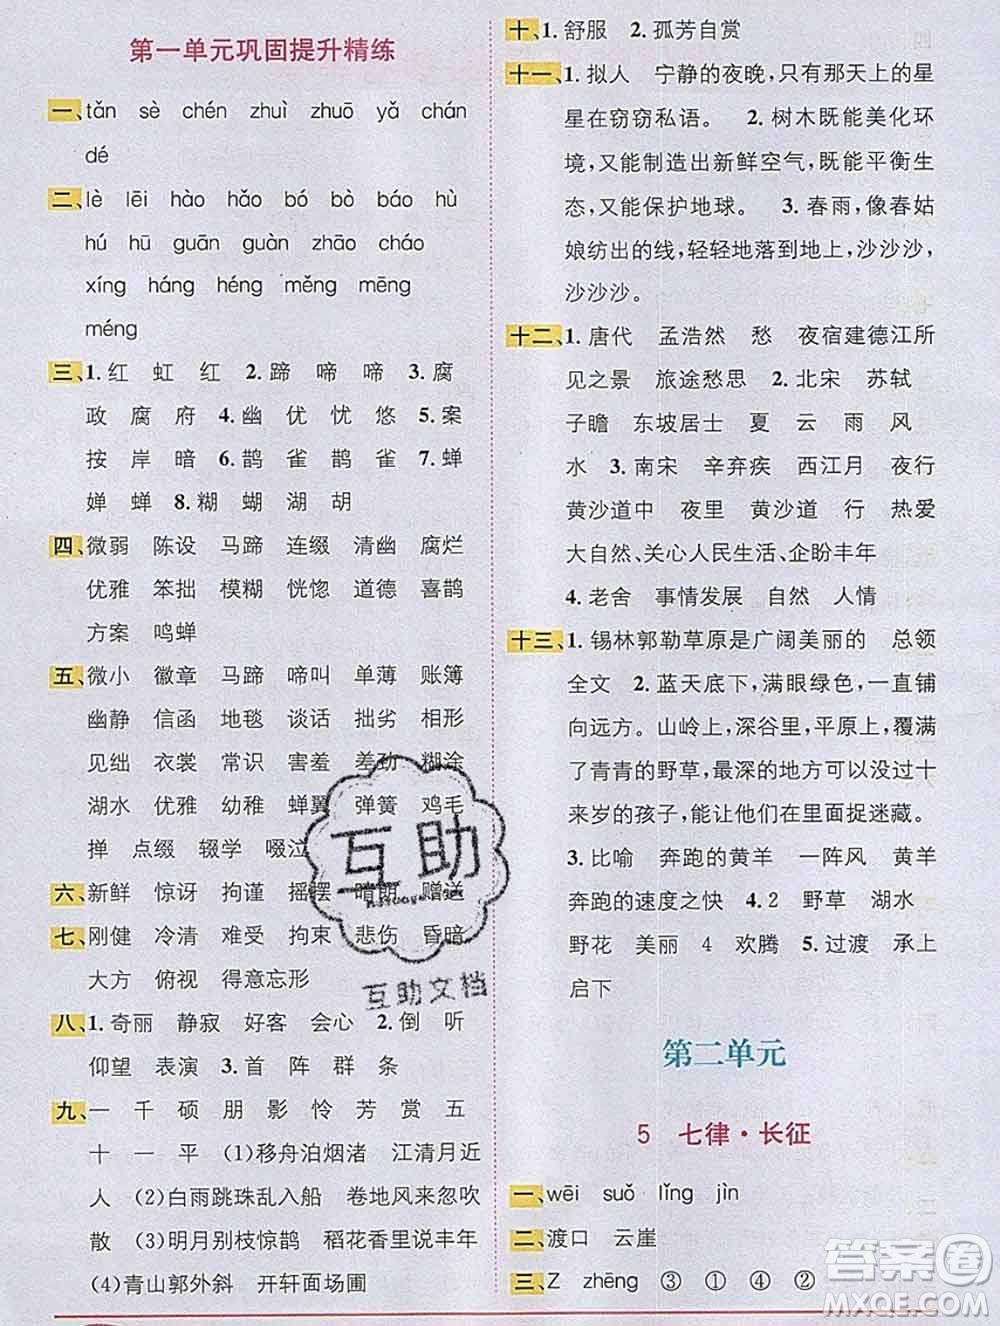 第一单元巩固提升精练
一、tǎn sè chén zhuì zhuō yǎ chán
dé
二、lè lēi hào háo bó bò báo hù
hú hū guān guàn zhāo cháo
xíng háng héng měng mēng
méng
三、1.红 虹 红 2.蹄 啼 啼 3.腐
政 腐 府 4.幽 优 忧 悠 5.案
按 岸 暗 6.鹊 雀 鹊 雀 7.蝉
婵 蝉 8.糊 蝴 湖 胡
四、微弱 陈设 马蹄 连缀 清幽 腐烂
优雅 笨拙 模糊 恍惚 道德 喜鹊
方案 鸣蝉
五、微小 徽章 马蹄 啼叫 单薄 账簿
幽静 信函 地毯 谈话 拙劣 相形
见绌 衣裳 常常 害羞 差劲 糊涂
湖水 优雅 幼稚 蝉翼 弹簧 鸡毛
掸 点缀 辍学 啜泣
六、新鲜 惊讶 拘谨 摇摆 晴朗 赠送
七、刚健 冷清 难受 拘束 悲伤 昏暗
大方 俯视 得意忘形
八、1.奇丽 静寂 好客 会心 2.倒 听
仰望 表演 3.首 阵 群 条
九、一 千 硕 朋 影 怜 芳 赏 五
十 一 平 (1)移舟泊烟渚 江清月近
人 (2)白雨跳珠乱入船 卷地风来忽吹
散 (3)明月别枝惊鹊 稻花香里说丰年
(4)青山郭外斜 开轩面场圃
十、1.舒服 2.孤芳自赏
十一、1.拟人 宁静的夜晚,只有那天上的星
星在窃窃私语。 2.树木既能美化环
境,又能制造出新鲜空气,既能平衡生
态,又能保护地球。 3.春雨,像春姑
娘纺出的线,轻轻地落到地上,沙沙沙,
沙沙沙。
十二、1.唐代 孟浩然 愁 夜宿建德江所
见之景 旅途愁思 2.北宋 苏轼
子瞻 东坡居士 夏 云 雨 风
水 3.南宋 辛弃疾 西江月 夜行
黄沙道中 夜里 黄沙道 行 热爱
大自然、关心人民生活、企盼丰年
4.老舍 事情发展 自然 人情
十三、1.锡林郭勒草原是广阔美丽的 总领
全文 2.蓝天底下,满眼绿色,一直铺
向远方。山岭上,深谷里,平原上,覆满
了青青的野草,最深的地方可以没过十
来岁的孩子,能让他们在里面捉迷藏。
3.比喻 奔跑的黄羊 一阵风 黄羊
奔跑的速度之快 4.2 野草 湖水
野花 美丽 4 欢腾 5.过渡 承上
启下
第二单元
5 七律·长征
一、wēi suǒ lǐng jìn
二、渡口 云崖
三、Z zhēng ③ ① ④ ②
互助
互助文档
答案圈
MXQE.COM